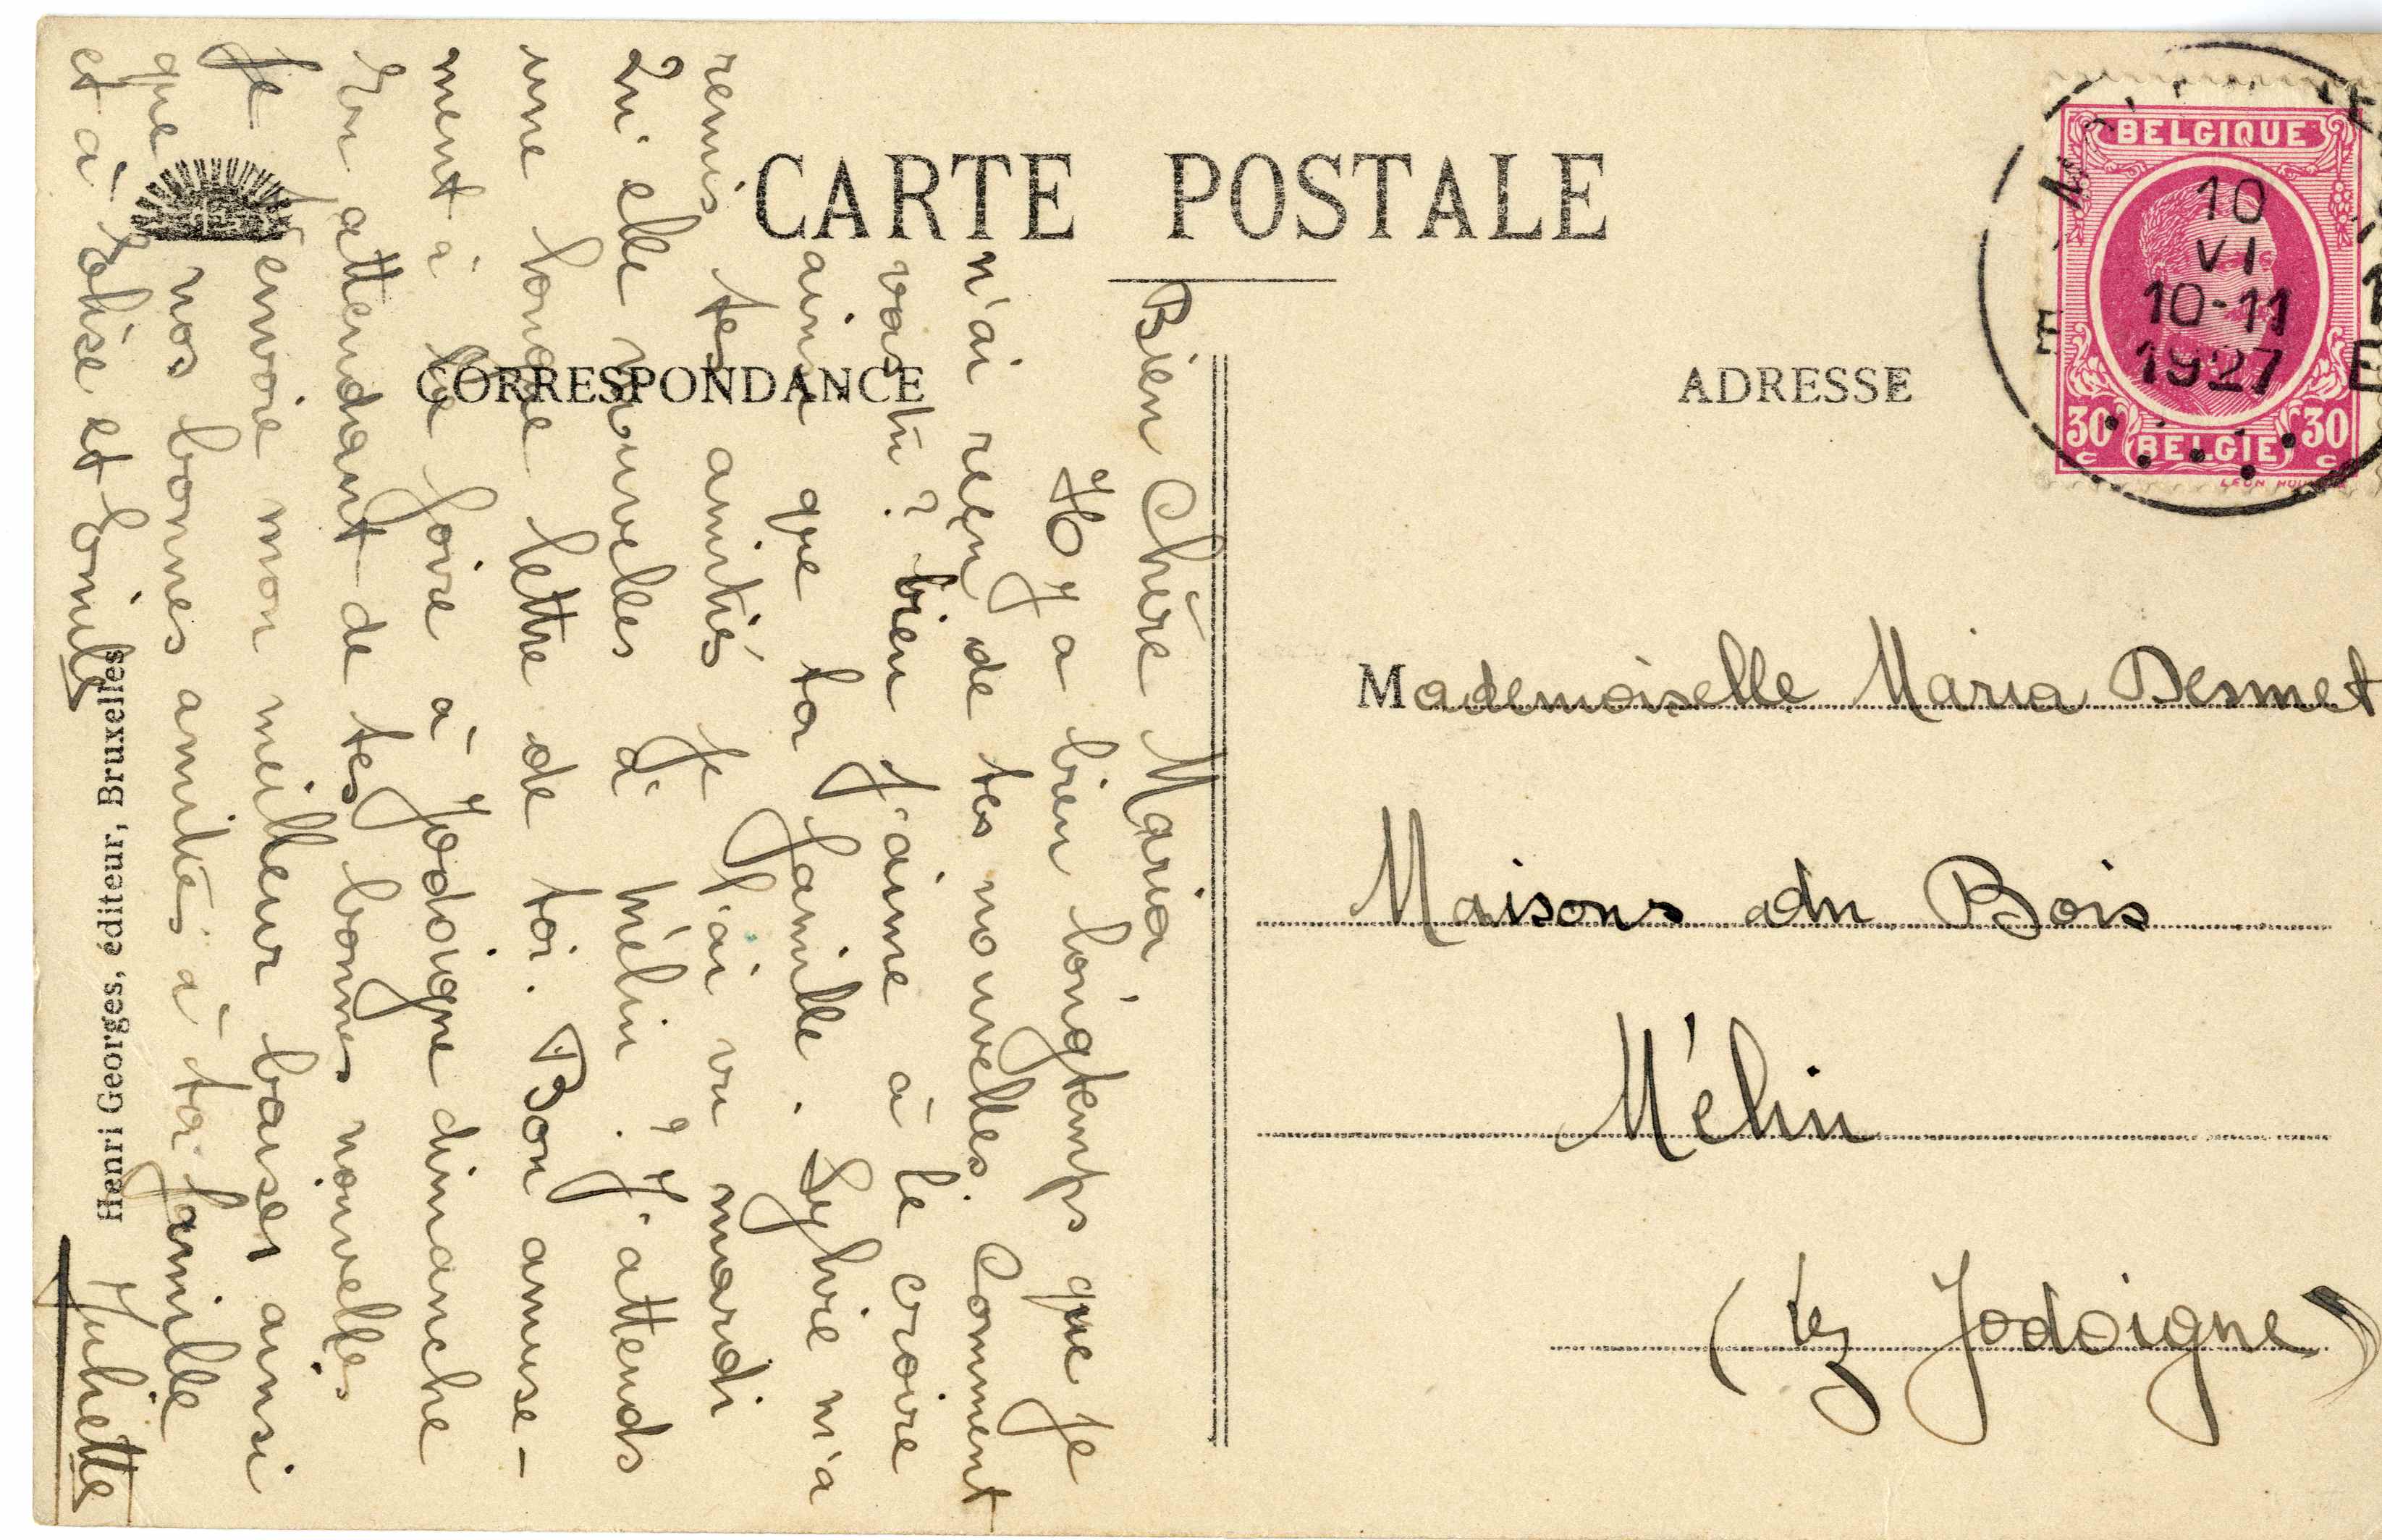 CARTE POSTALE
CORRESPONDANCE
ADRESSE
BELGIQUE
10
VI
10-11
1927
30 c BELGIE 30 c
Bien Chère Maria
Il y a bien longtemps que je
n'ai reçu de tes nouvelles. Comment
vas tu? bien j'aime à le croire
ainsi que ta famille. Sylvie m'a
remis tes amitiés je l'ai vu mardi
Qu'elle nouvelles d' Mélin? J'attends
une longue lettre de toi. Bon amuse-
ment à la foire à Jodoigne dimanche
En attendant de tes bonnes nouvelles
Je t'envoie mon meilleur baiser ainsi
que nos bonnes amitiés à ta famille
et à Elise et Emile
Juliette
Mademoiselle Maria Desmet
Maisons du Bois
Mélin
(lez Jodoigne)
Henri Georges, éditeur, Bruxelles